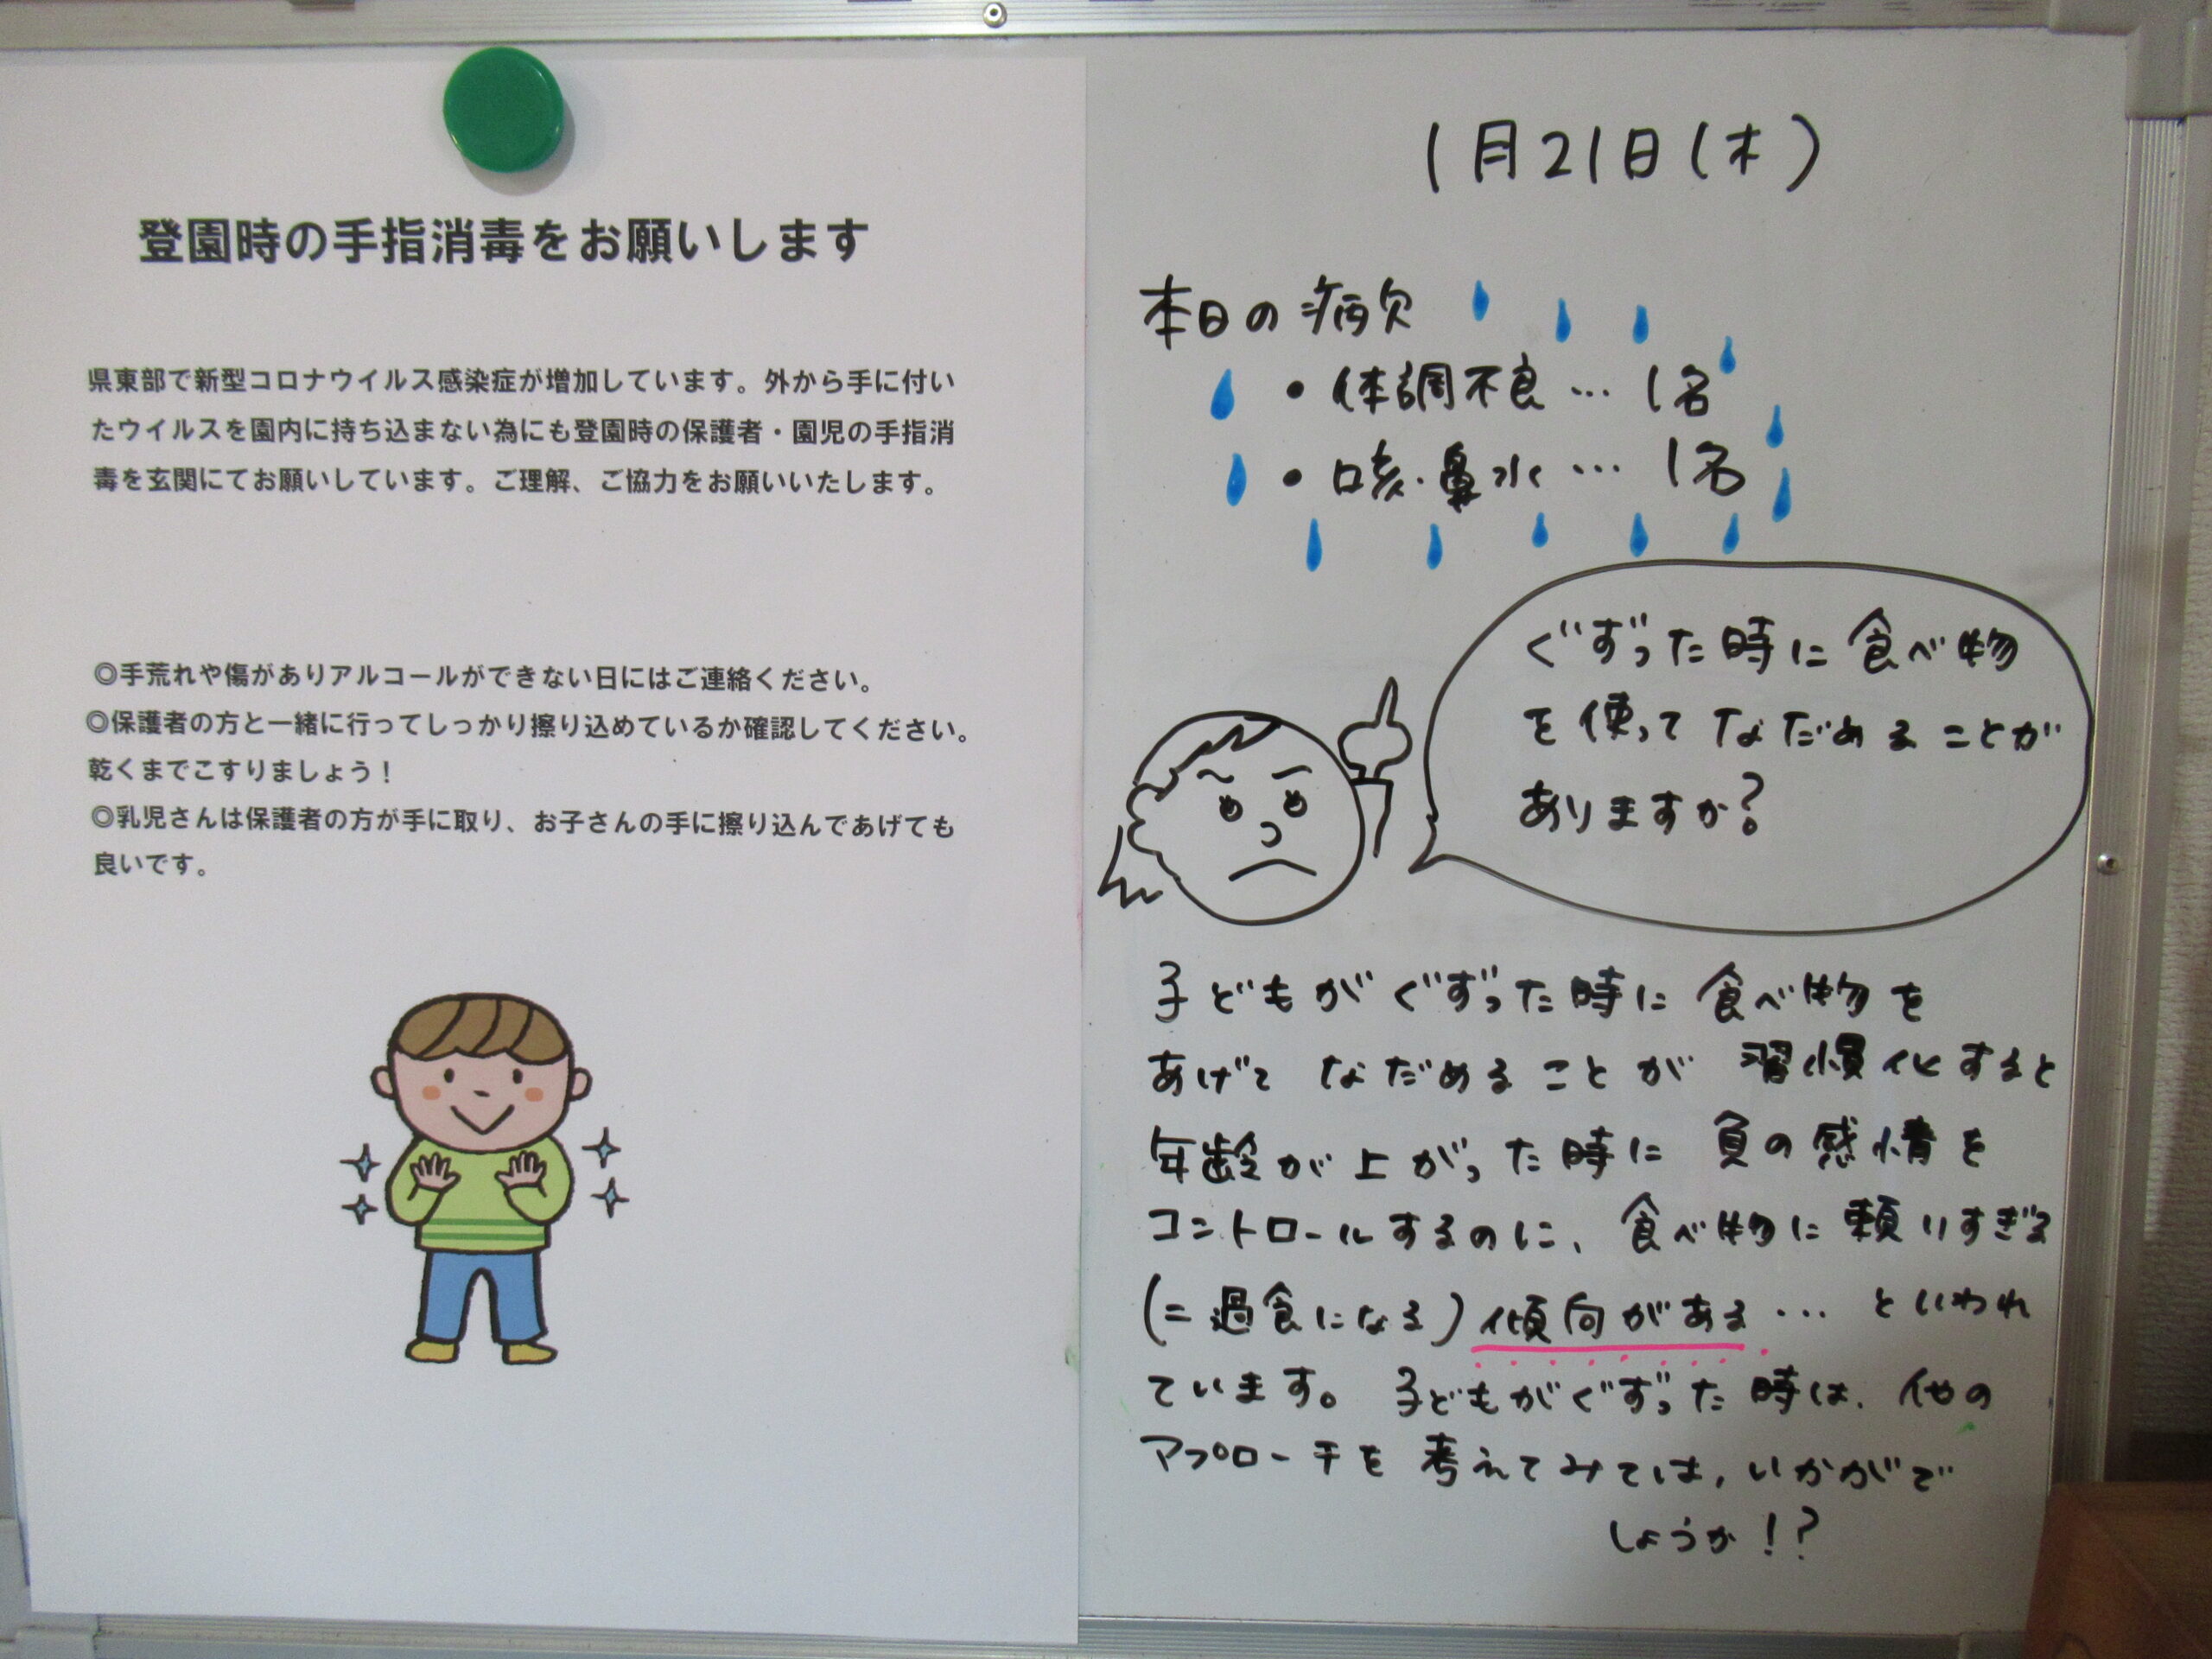 登園時の手指消毒をお願いします
県東部で新型コロナウイルス感染症が増加しています。外から手に付い
たウイルスを園内に持ち込まない為にも登園時の保護者・園児の手指消
毒を玄関にてお願いしています。ご理解、ご協力をお願いいたします。
◎手荒れや傷がありアルコールができない日にはご連絡ください。
◎保護者の方と一緒に行ってしっかり擦り込めているか確認してください。
乾くまでこすりましょう！
◎乳児さんは保護者の方が手に取り、お子さんの手に擦り込んであげても
良いです。
1月21日(木)
本日の病欠
・体調不良… 1名
・咳・鼻水… 1名
ぐずった時に食べ物
を使ってなだめることが
ありますか?
子どもがぐずった時に食べ物を
あげてなだめることが習慣化すると
年齢が上がった時に負の感情を
コントロールするのに、食べ物に頼りすぎる
(=過食になる)傾向がある…といわれ
ています。子どもがぐずった時は、他の
アプローチを考えてみては、いかがで
しょうか!?